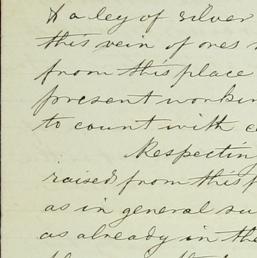 & a ley of silver
this vein of ores
from this place
present workin
to count with
Respecting
raised from this
as in general su
as already in the